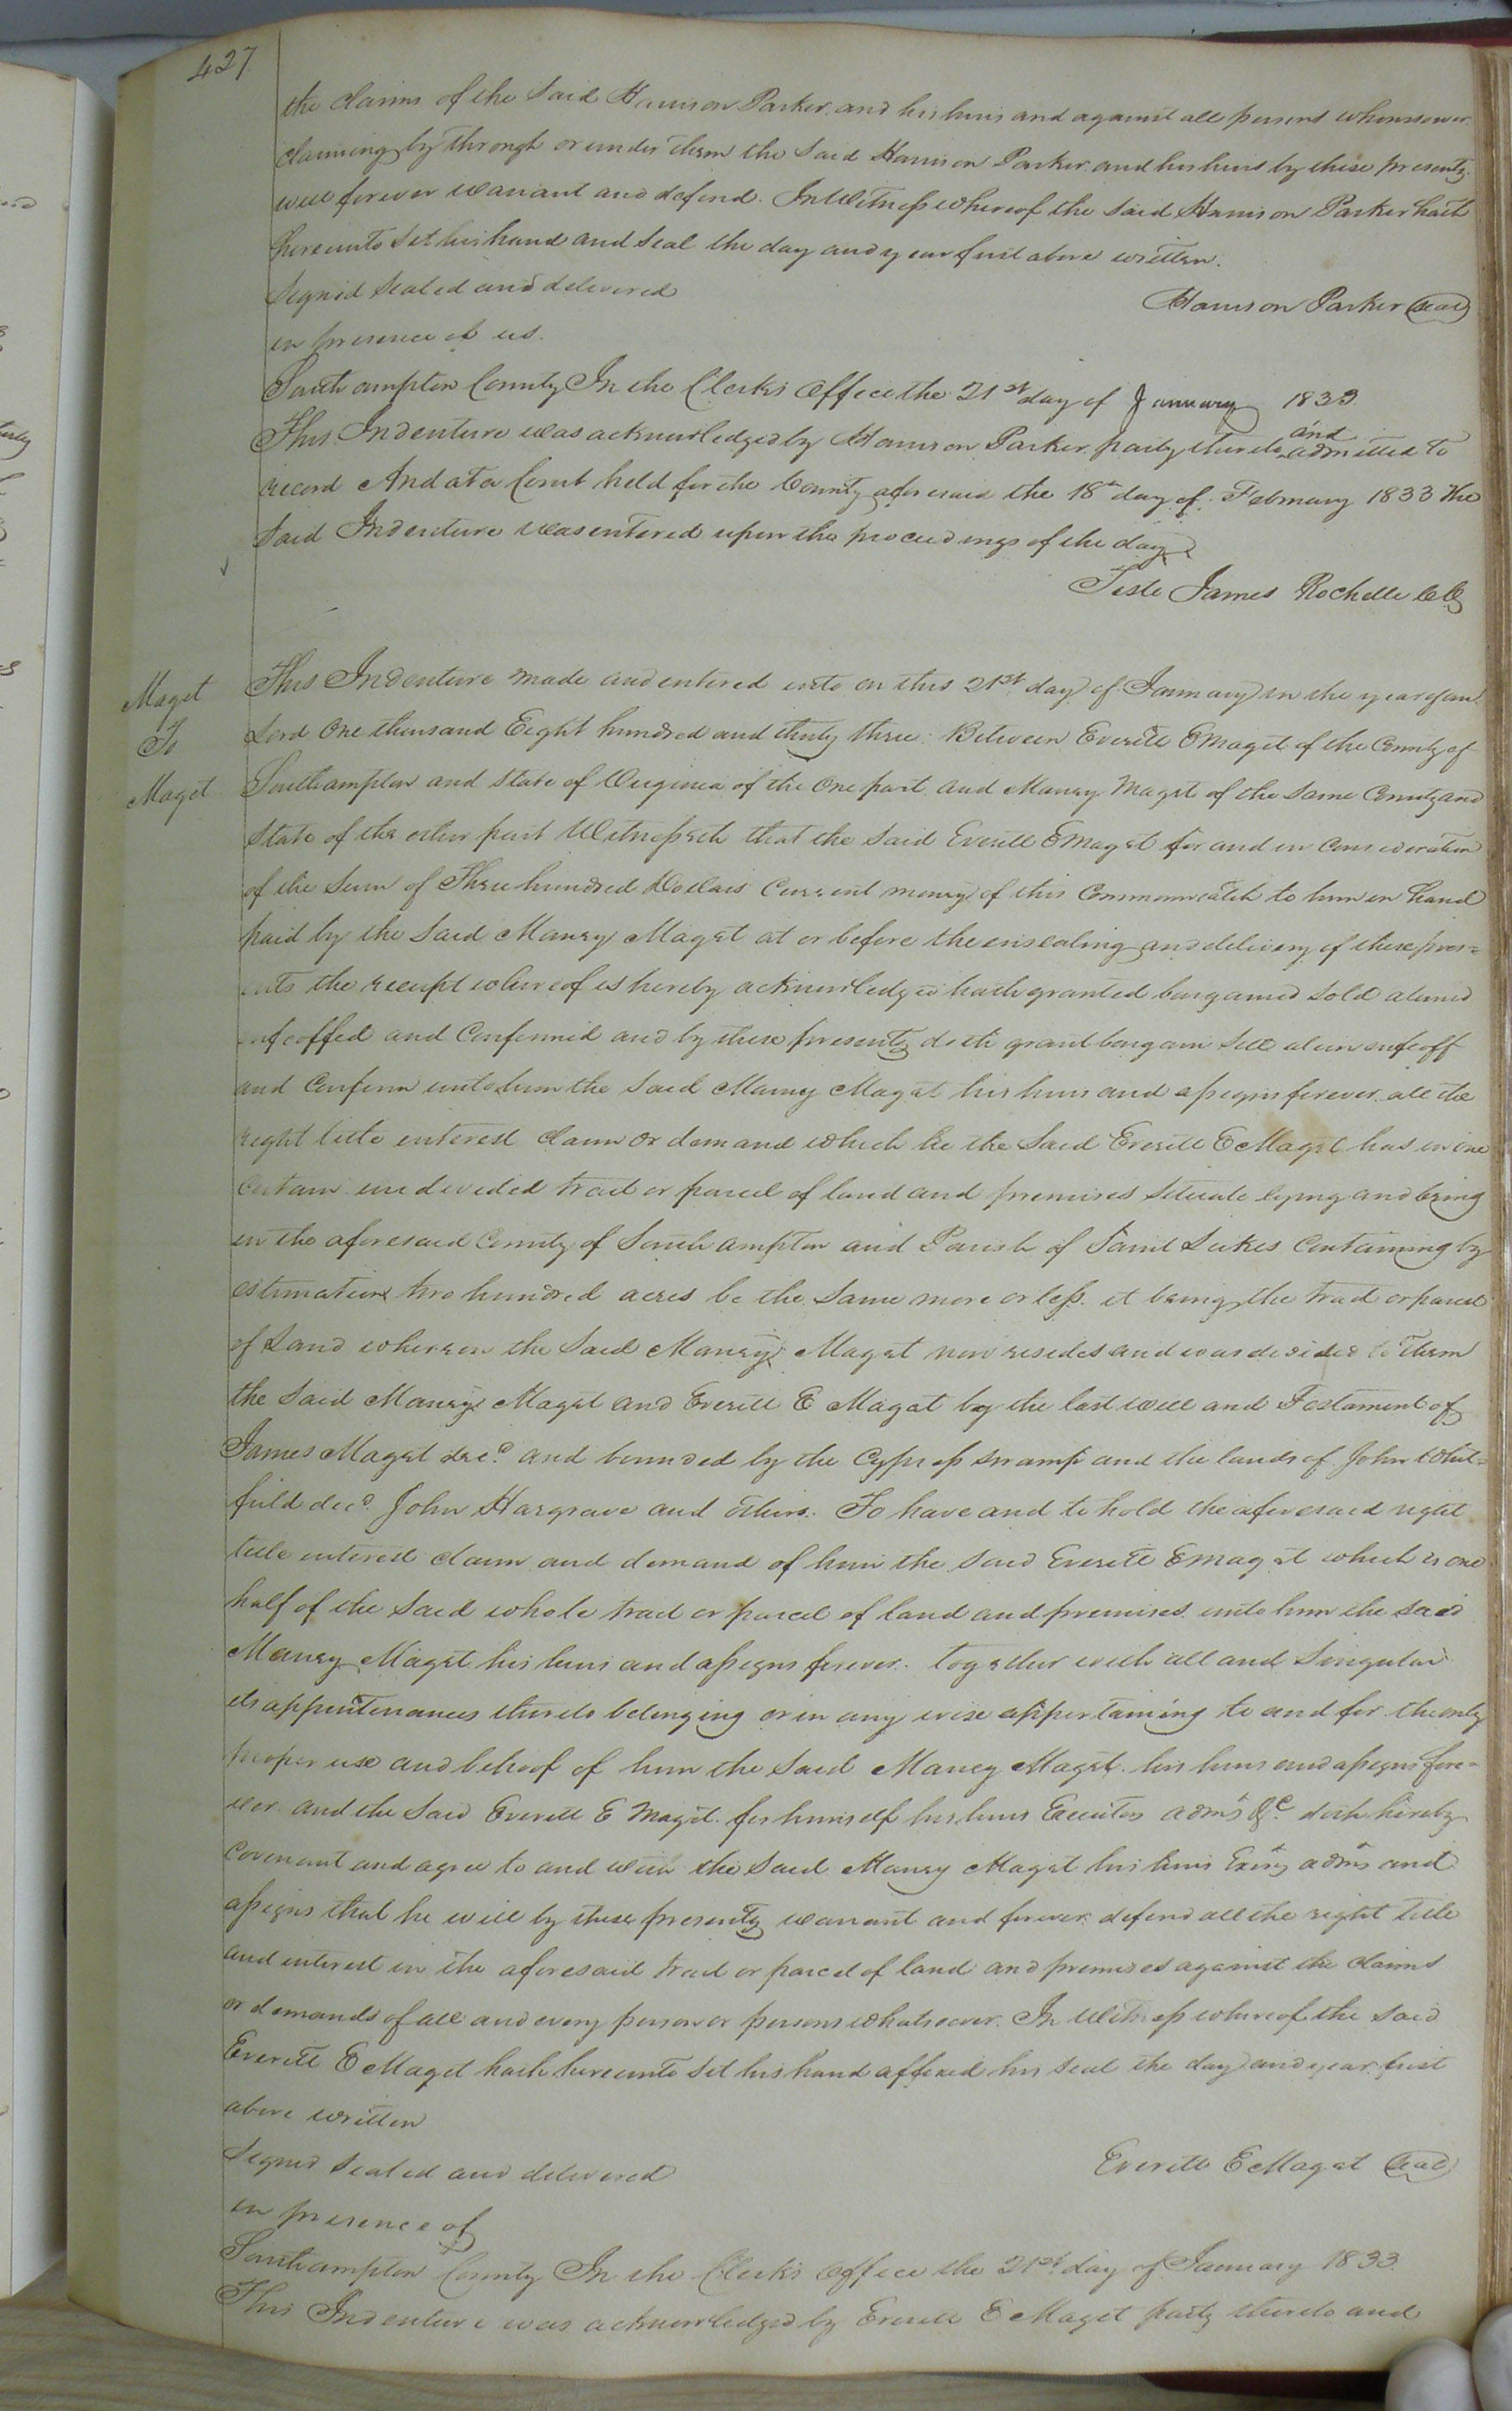 427
the claims of the said Harrison Parker. and his heirs and against all persons whomsoever
claiming by through or under them the said Harrison Parker. and his heirs by these presents
will forever warrant and defend. In Witness whereof the said Harrison Parker hath
hereunto set his hand and seal the day and year first above written.
Signed sealed and delivered
Harrison Parker (seal)
in presence of us.
Southampton County In the Clerk's Office the 21st day of January 1833.
This Indenture was acknowledged by Harrison Parker party thereto and admitted to
record And at a Court held for the County aforesaid the 18th day of February 1833 The
said Indenture was entered upon the proceedings of the day
Teste James Rochelle CC
Maget
To
Maget
This Indenture made and entered into on this 21st day of January in the year of our
Lord One thousand Eight hundred and thirty three. Between Everitt E Maget of the County of
Southampton and State of Virginia of the One part and Maney Maget of the same County and
State of the other part Witnesseth that the said Everitt E Maget for and in Consideration
of the Sum of Three hundred Dollars Current money of this Commonwealth to him in hand
paid by the said Maney Maget at or before the ensealing and delivery of these pres=
ents the receipt whereof is hereby acknowledged hath granted bargained sold aliened
enfeoffed and Confirmed and by these presents doth grant bargain sell alien enfeoff
and Confirm unto him the said Maney Maget his heirs and assigns forever. all the
right title interest claim or demand which he the said Everitt E Maget has in one
certain undivided tract or parcel of land and premises situate lying and being
in the aforesaid County of Southampton and Parish of Saint Lukes Containing by
estimation two hundred acres be the same more or less. it being the tract or parcel
of Land whereon the said Maney Maget now resides and was devided to Them
the said Maney Maget and Everitt E Maget by the last will and Testament of
James Maget decd. and bounded by the Cypress swamp and the lands of John Whit=
field decd. John Hargrave and others. To have and to hold the aforesaid right
title interest claim and demand of him the said Everitt E Maget which is one
half of the said whole tract or parcel of land and premises. unto him the said
Maney Maget his heirs and assigns forever. together with all and Singular
its appurtenances thereto belonging or in any wise appertaining to and for the only
proper use and behoof of him the said Maney Maget. his heirs and assigns fore=
ver. and the said Everitt E Maget. for himself his heirs Executors admrs &c. doth hereby
Covenant and agree to and with the said Maney Maget his heirs Exors admrs and
assigns that he will by these presents warrant and forever defend all the right title
and interest in the aforesaid tract or parcel of land and premises against the claims
or demands of all and every person or persons whatsoever. In Witness whereof the said
Everitt E Maget hath hereunto set his hand affixed his seal the day and year first
above written
Signed sealed and delivered
Everitt E Maget (seal)
in presence of
Southampton County In the Clerk's Office the 21st day of January 1833.
This Indenture was acknowledged by Everitt E Maget party thereto and